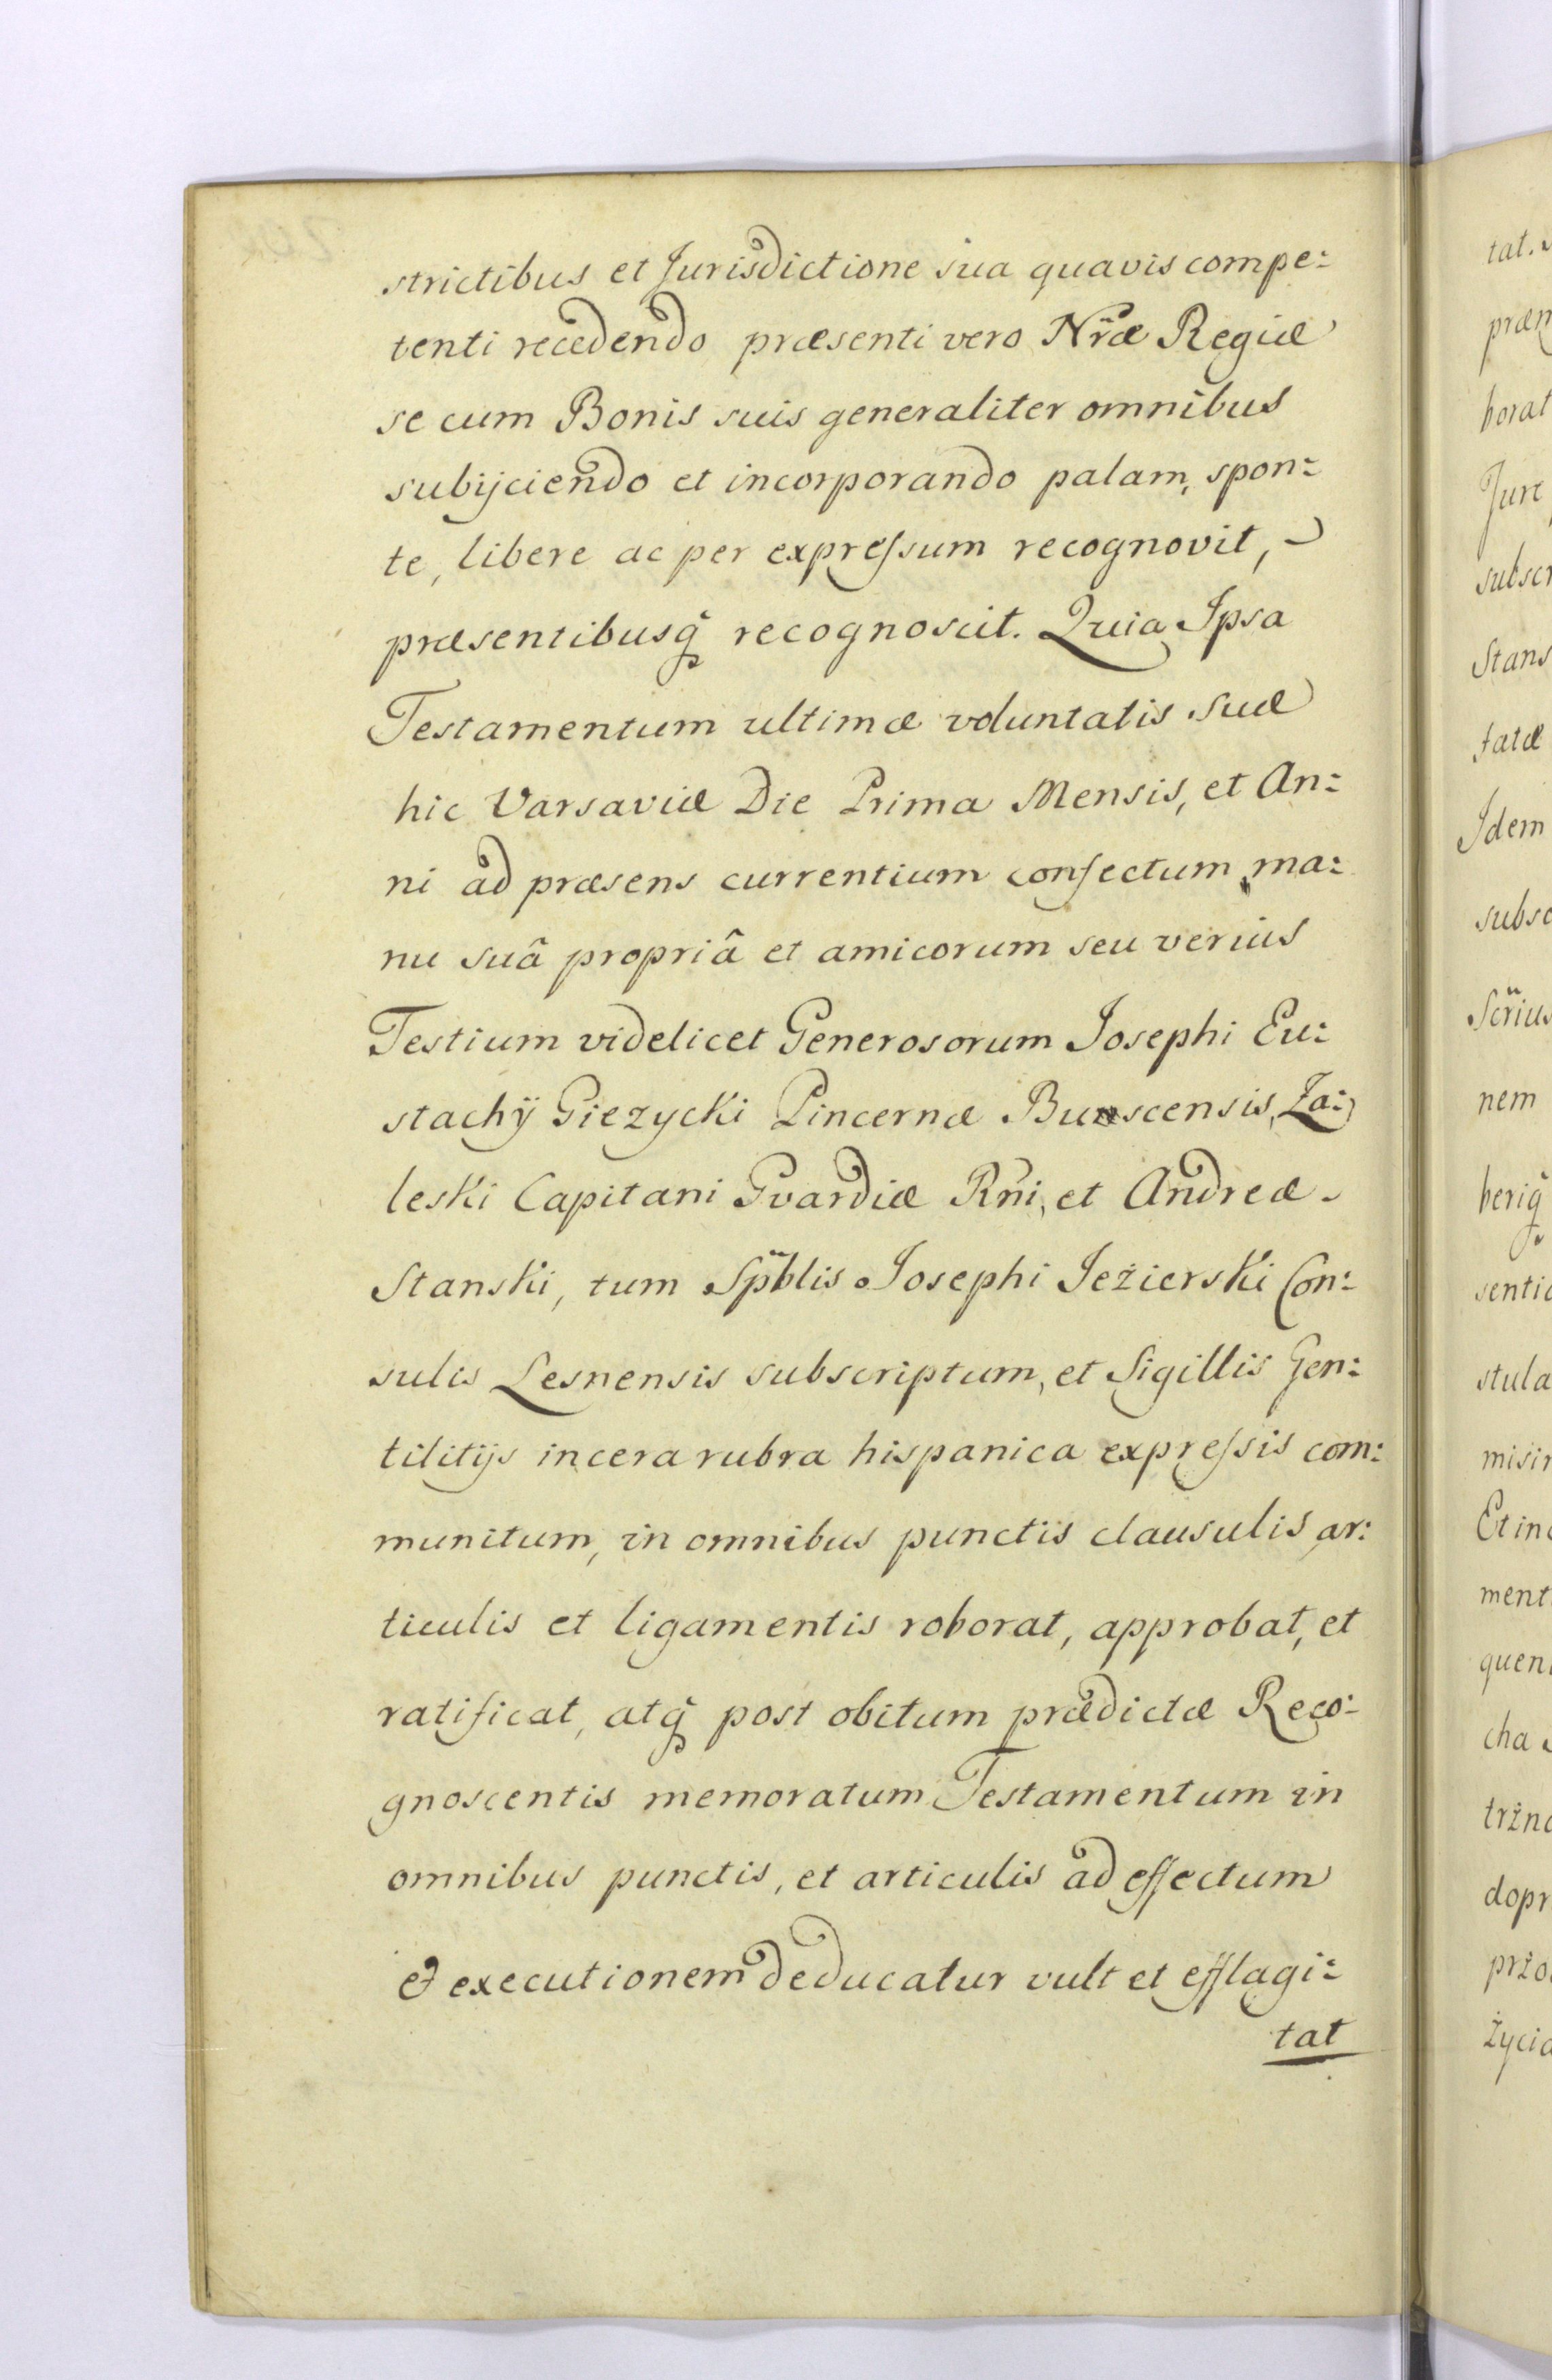 strictibus et Jurisdictione sua quavis compe:
tenti recedendo præsenti vero Nr̃æ Regiæ
se cum Bonis suis generaliter omnibus
subijciendo et incorporando palam, spon:
te, libere ac per expreſsum recognovit,
præsentibusq̃ recognoscit. Quia Ipsa
Testamentum ultimæ voluntatis suæ
hic Varsaviæ Die Prima Mensis, et An:
ni ad præsens currentium confectum, ma:
nu suâ propriâ et amicorum seu verius
Testium videlicet Generosorum Josephi Eu:
stachÿ Giezycki Pincernæ Buscensis, Za:
leski Capitani Gvardiæ Rñi, et Andreæ
Stanski, tum Sp̃blis Josephi Jeżierski Con:
sulis Lesnensis subscriptum, et Sigillis Gen:
tilitijs in cera rubra hispanica expreſsis com:
munitum, in omnibus punctis clausulis ar:
ticulis et ligamentis roborat, approbat, et
ratificat, atq̃ post obitum prædictæ Reco:
gnoscentis memoratum Testamentum in
omnibus punctis, et articulis ad effectum
et executionem deducatur vult et efflagi:
tat
tat.
præm
borat
Jure
subscr
Stans
tatæ
Idem
subsc
Scr̃ius
nem
beriq̃
sentia
stula
misir
Et in
ment
quen
cha
trżnа
dopr
przo
życia